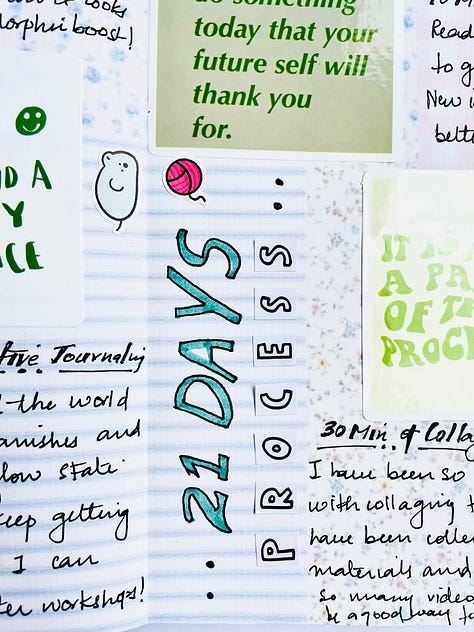 looks
boost!
do something
today that your
future self will
thank you
for.
Read
to g
New
bett
D A
Y
CE
21 DAYS
PROCESS
IT IS
A PA
OF TH
PROC
tive Journaling
the world
anishes and
low state.
keep getting
I can
ter workshops!
30 Min of Colla
I have been so
with collaging
have been colle
materials and
so many video
be a good way to